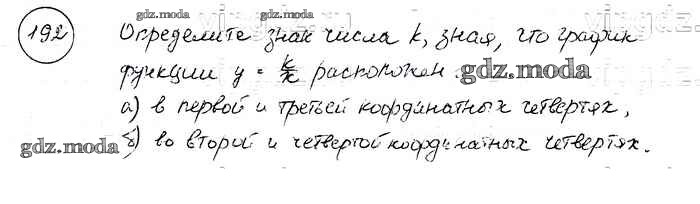 gdz.moda gdz.moda
192 Определите знак числа k, зная, что график
функции y = k/x расположен: gdz.moda
а) в первой и третьей координатных четвертях,
gdz.moda б) во второй и четвертой координатных четвертях.
gdz.moda gdz.moda